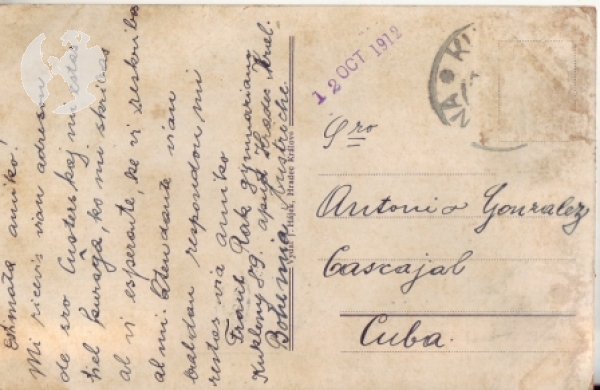 Estimata amiko!
Mi ricevis vian adreson
de sro Ĉusters kaj mi estas
tiel kuraĝa, ke mi skribas
al vi esperante, ke vi reskribos
al mi. Atendante vian
baldaŭ respondon mi
restas via amiko
Frant. Rak, gymnaziano
Kukleny 89. apud Hradec Král.
Bohemia
Hradec Králové
12 OCT 1912
Sro
Antonio Gonzalez
Cascajal
Cuba.